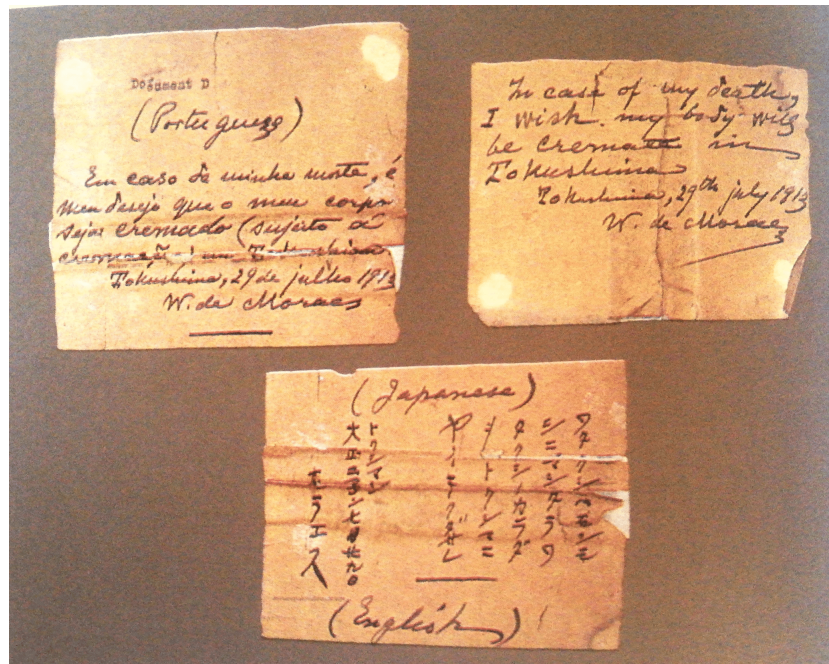 Document D
(Portugueze)
Em caso da minha morte, é
meu desejo que o meu corpo
seja cremado (sujeito á
cremação) em Tokushima
Tokushima, 29 de julho 1913
W. de Moraes
In case of my death,
I wish my body will
be cremate in
Tokushima
Tokushima, 29th july 1913
W. de Moraes
(Japanese)
ワタクシハモシモ
シニマシタラワ
タクシノカラダ
ヲトクシマニ
ヤイテクダサレ
トクシマ
大正二年七月廿九日
モラエス
(English)